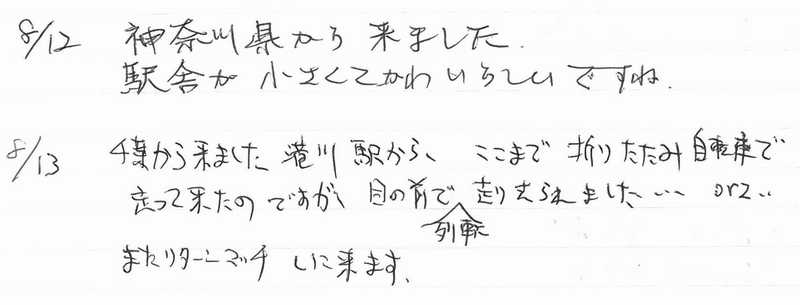 8/12 神奈川県から来ました.
駅舎が小さくてかわいらしいですね.
8/13 千葉から来ました 港川駅から、ここまで折りたたみ自転車で
走って来たのですが、目の前で走り去られました… orz..
列車
またリターンマッチしに来ます.